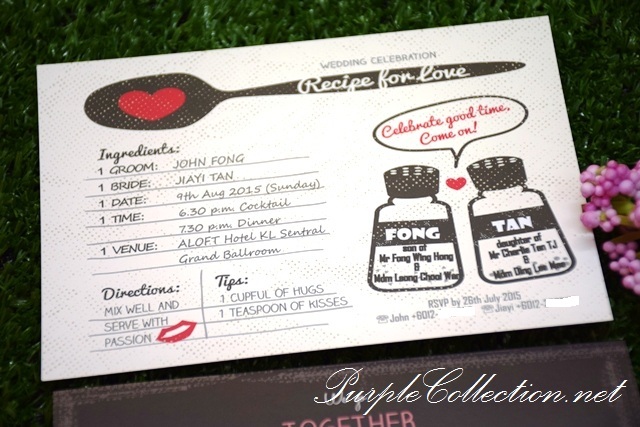 WEDDING CELEBRATION
Recipe for Love
Celebrate good time,
Come on!
Ingredients:
1 GROOM: JOHN FONG
1 BRIDE: JIAYI TAN
1 DATE: 9th Aug 2015 (Sunday)
1 TIME: 6.30 p.m. Cocktail
7.30 p.m. Dinner
1 VENUE: ALOFT Hotel KL Sentral
Grand Ballroom
Directions:
MIX WELL AND
SERVE WITH
PASSION
Tips:
1 CUPFUL OF HUGS
1 TEASPOON OF KISSES
FONG
son of
Mr Fong Wing Hong
&
Mdm Leong Chooi Wan
TAN
daughter of
Mr Charlie Tan TJ
&
Mdm Ding Lee
RSVP by 26th July 2015
John +6012-
Jiayi +6012-
PurpleCollection.net
TOGETHER